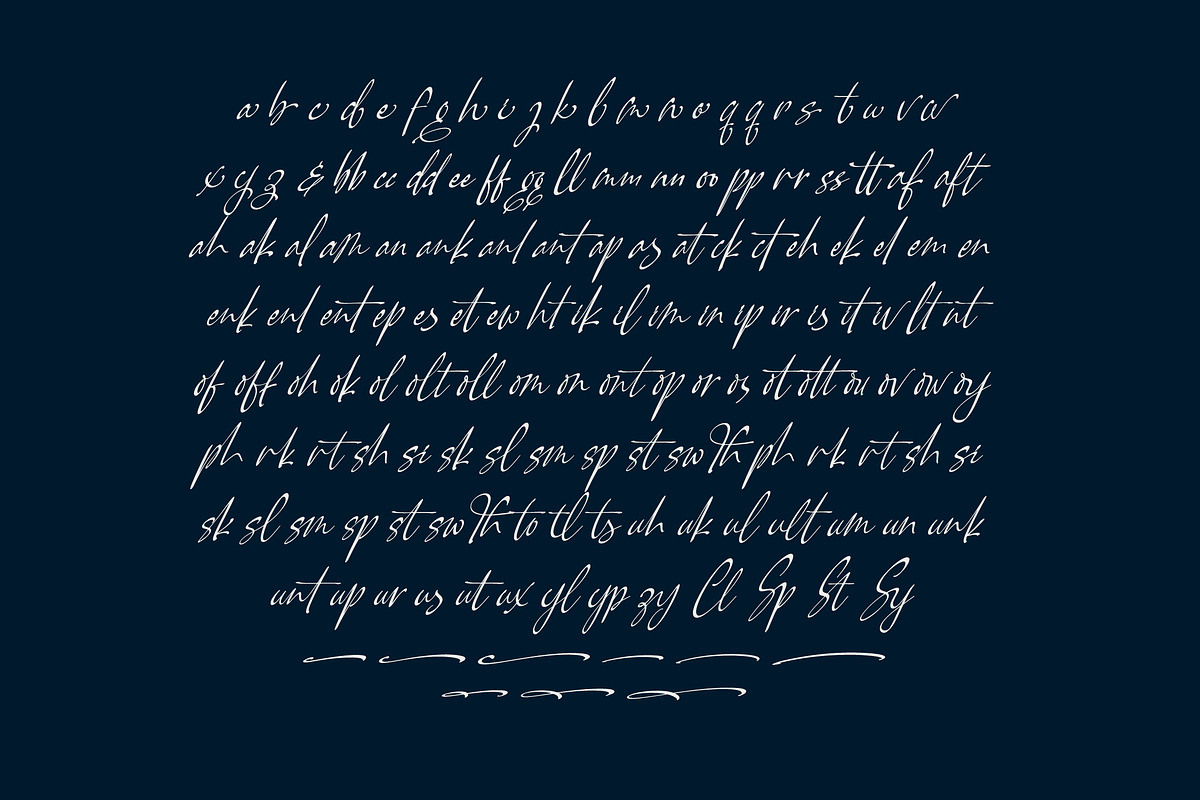 a b c d e f g h i j k l m n o q q r s t u v w
x y z & bb cc dd ee ff gg ll mm nn oo pp rr ss tt af aft
ah ak al am an ank anl ant ap as at ck ct eh ek el em en
enk enl ent ep es et ew ht ik il im in ip ir is it iv lt nt
of off oh ok ol olt oll om on ont op or os ot ott ou ov ow oy
ph rk rt sh si sk sl sm sp st sw Th ph rk rt sh si
sk sl sm sp st sw Th to tl ts uh uk ul ult um un unk
unt up ur us ut ux yl yp zy Cl Sp St Sy